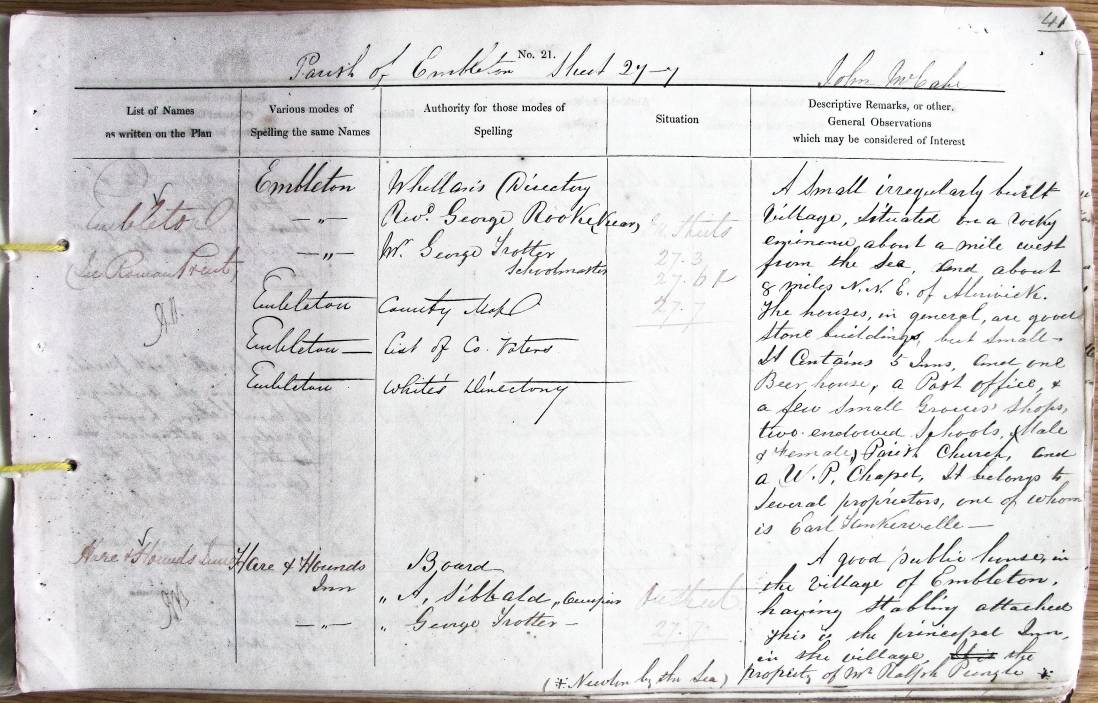 41
No. 21.
Parish of Embleton Sheet 27-7
John McCabe
List of Names
as written on the Plan
Various modes of
Spelling the same Names
Authority for those modes of
Spelling
Situation
Descriptive Remarks, or other.
General Observations
which may be considered of Interest
Embleton
See Roman Print
Embleton
— „ —
— „ —
Embleton
Embleton
Embleton
Whellan's Directory
Revd. George Rooke (Vicar)
Mr. George Trotter
Schoolmaster
County Map
List of Co. Voters
White's Directory
Sheets
27.3
27.6
27.7
A small irregularly built
Village, situated on a rocky
eminence about a mile west
from the Sea, and about
8 miles N.N.E. of Alnwick.
The houses, in general, are good
stone buildings, but small.
It Contains 5 Inns, and one
Beer house, a Post office, &
a few small Grocers' shops,
two endowed Schools, (Male
& Female) Parish Church, and
a W.P. Chapel, It belongs to
several proprietors, one of whom
is Earl Tankerville —
Hare & Hounds Inn
Hare & Hounds
Inn
— „ —
Board
„ A. Sibbald, Occupier
„ George Trotter —
27.7
A good public house, in
the village of Embleton,
having stabling attached
This is the principal Inn,
in the village, It is the
property of Mr Ralph Pringle *
(* Newton by the Sea)